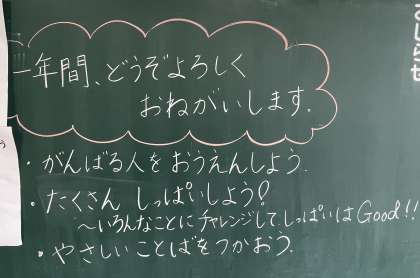 一年間、どうぞよろしく
おねがいします.
・がんばる人をおうえんしよう.
・たくさん しっぱいしよう!
〜いろんなことにチャレンジして、しっぱいはGood!!
・やさしいことばをつかおう.